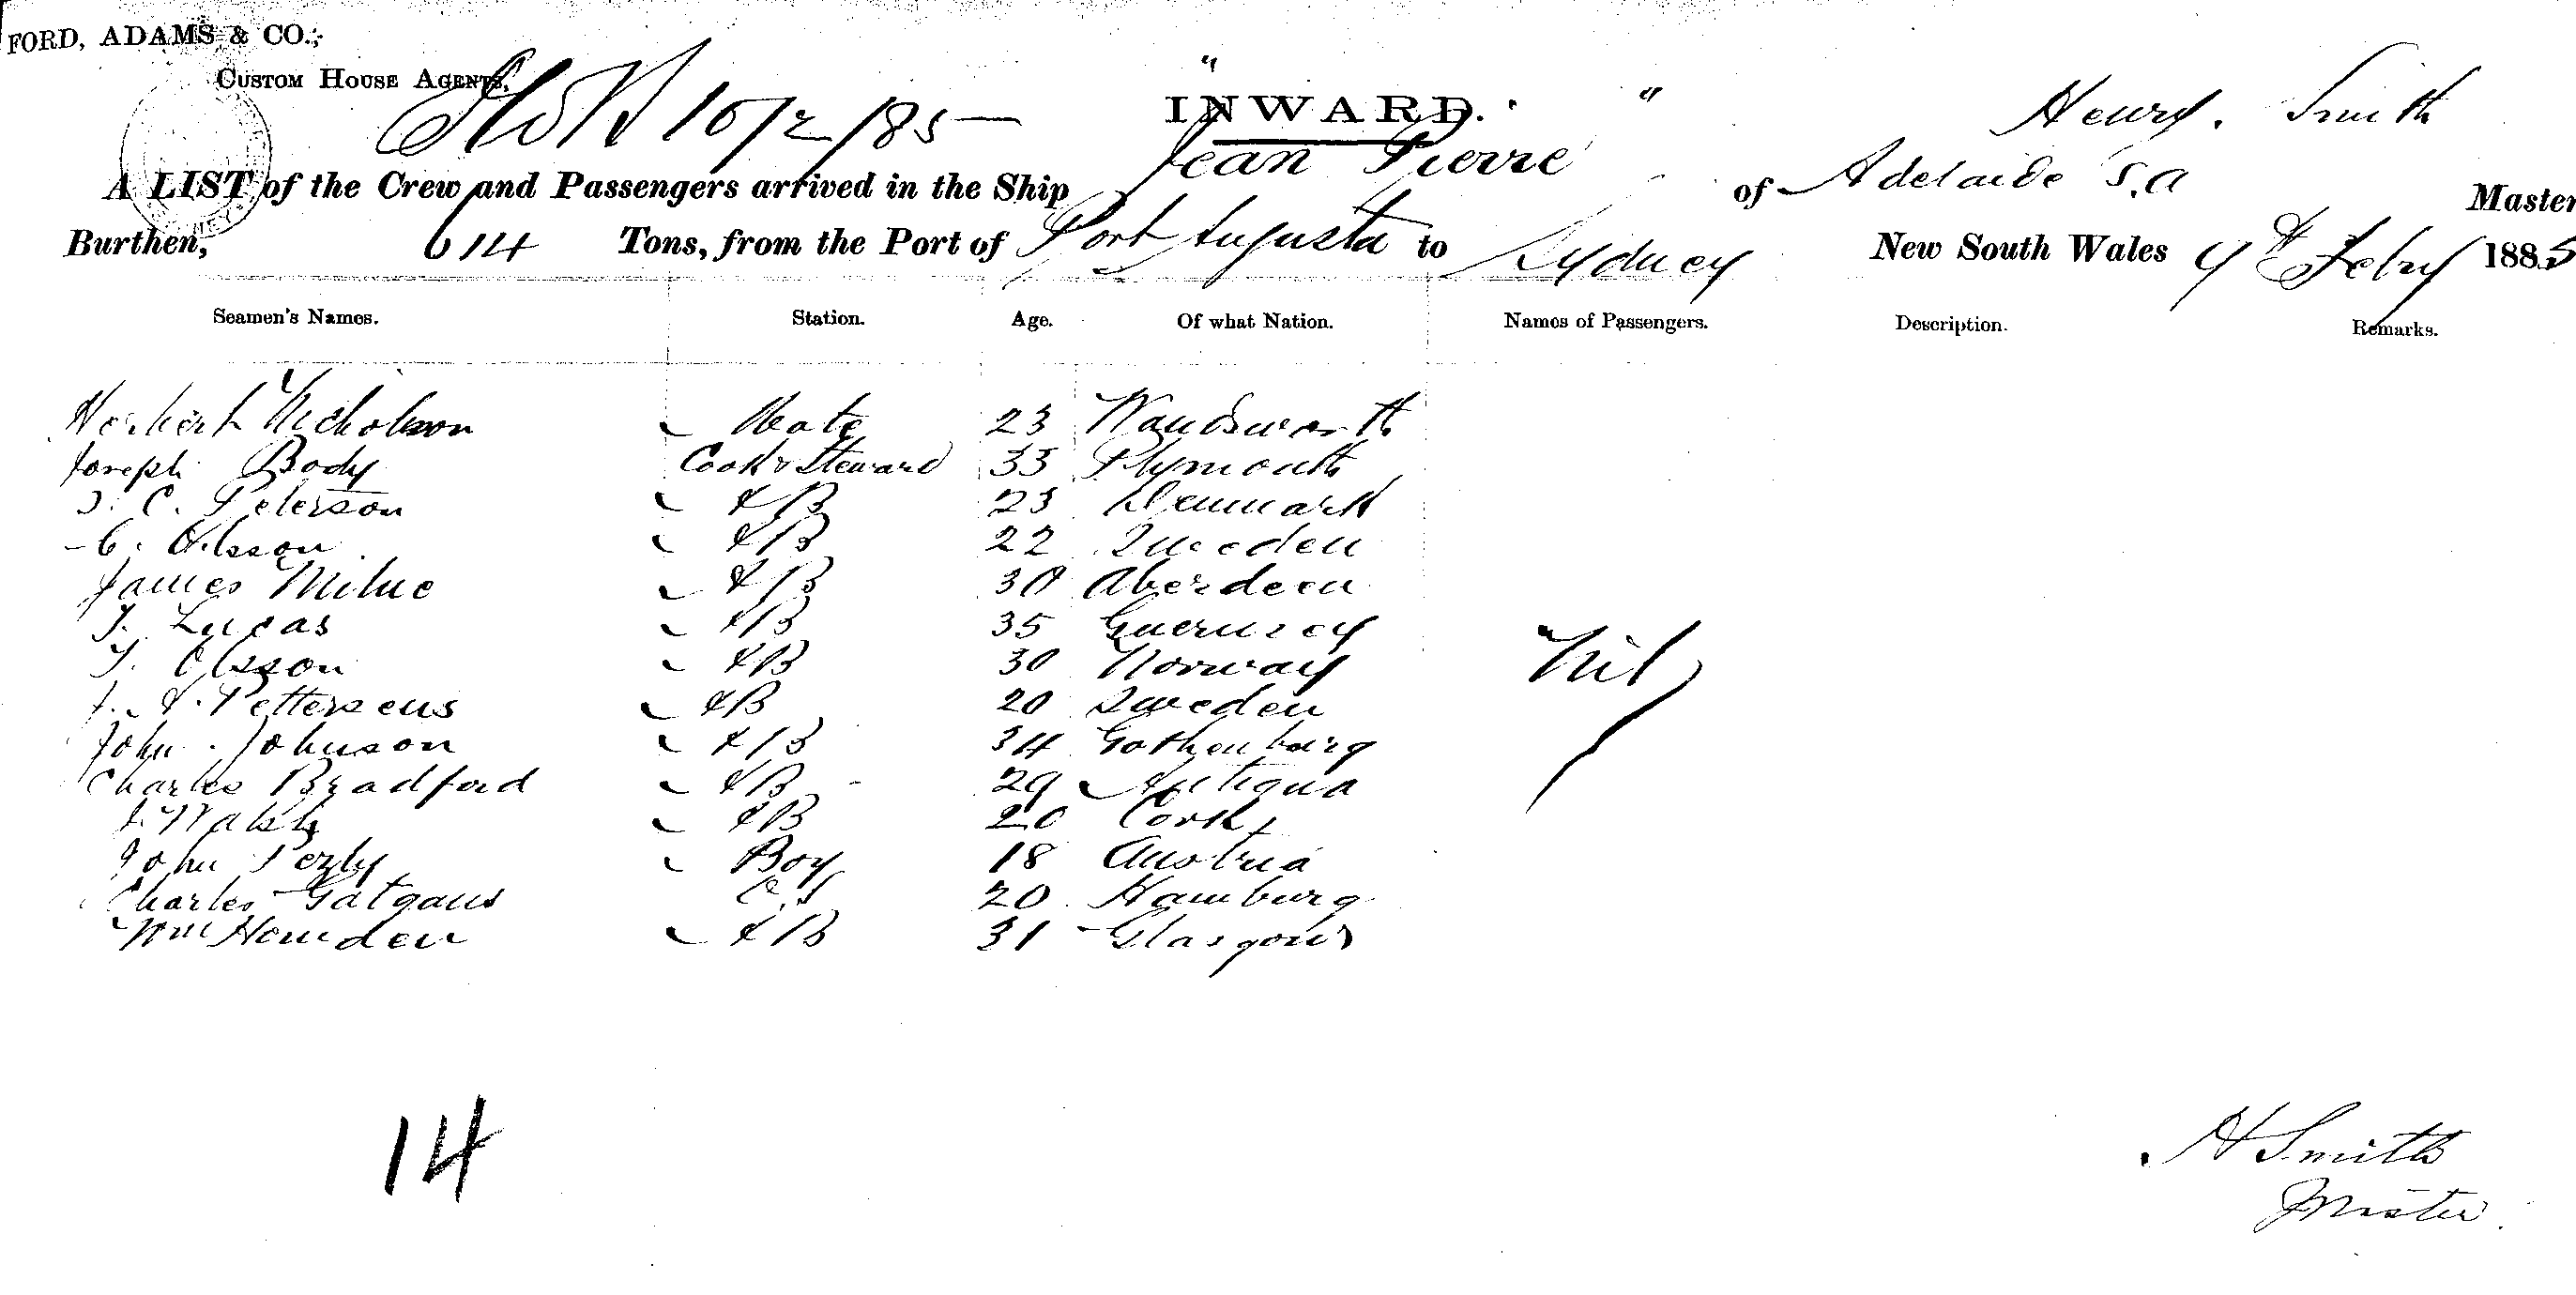 FORD, ADAMS & CO.,
CUSTOM HOUSE AGENTS,
10/2/85
INWARD.
Henry Smith
A LIST of the Crew and Passengers arrived in the Ship "Jean Pierre" of Adelaide S.A Master
Burthen, 614 Tons, from the Port of Port Augusta to Sydney New South Wales 9th Feby 1885
Seamen's Names. Station. Age. Of what Nation. Names of Passengers. Description. Remarks.
Herbert Nicholson Mate 23 Wandsworth
Joseph Body Cook & Steward 33 Plymouth
J. C. Peterson AB 23 Denmark
C. Olsson AB 22 Sweden
James Milne AB 30 Aberdeen
J. Lucas AB 35 Guernsey
J. Olsson AB 30 Norway
J. A. Petterseus AB 20 Sweden
John Johnson AB 34 Gothenburg
Charles Bradford AB 29 Antigua
J. Walsh AB 20 Cork
John Boy 18 Austria
Charles Gatgaus O.S 20 Hamburg
Wm Howden AB 31 Glasgow
Nil
14
H Smith
Master